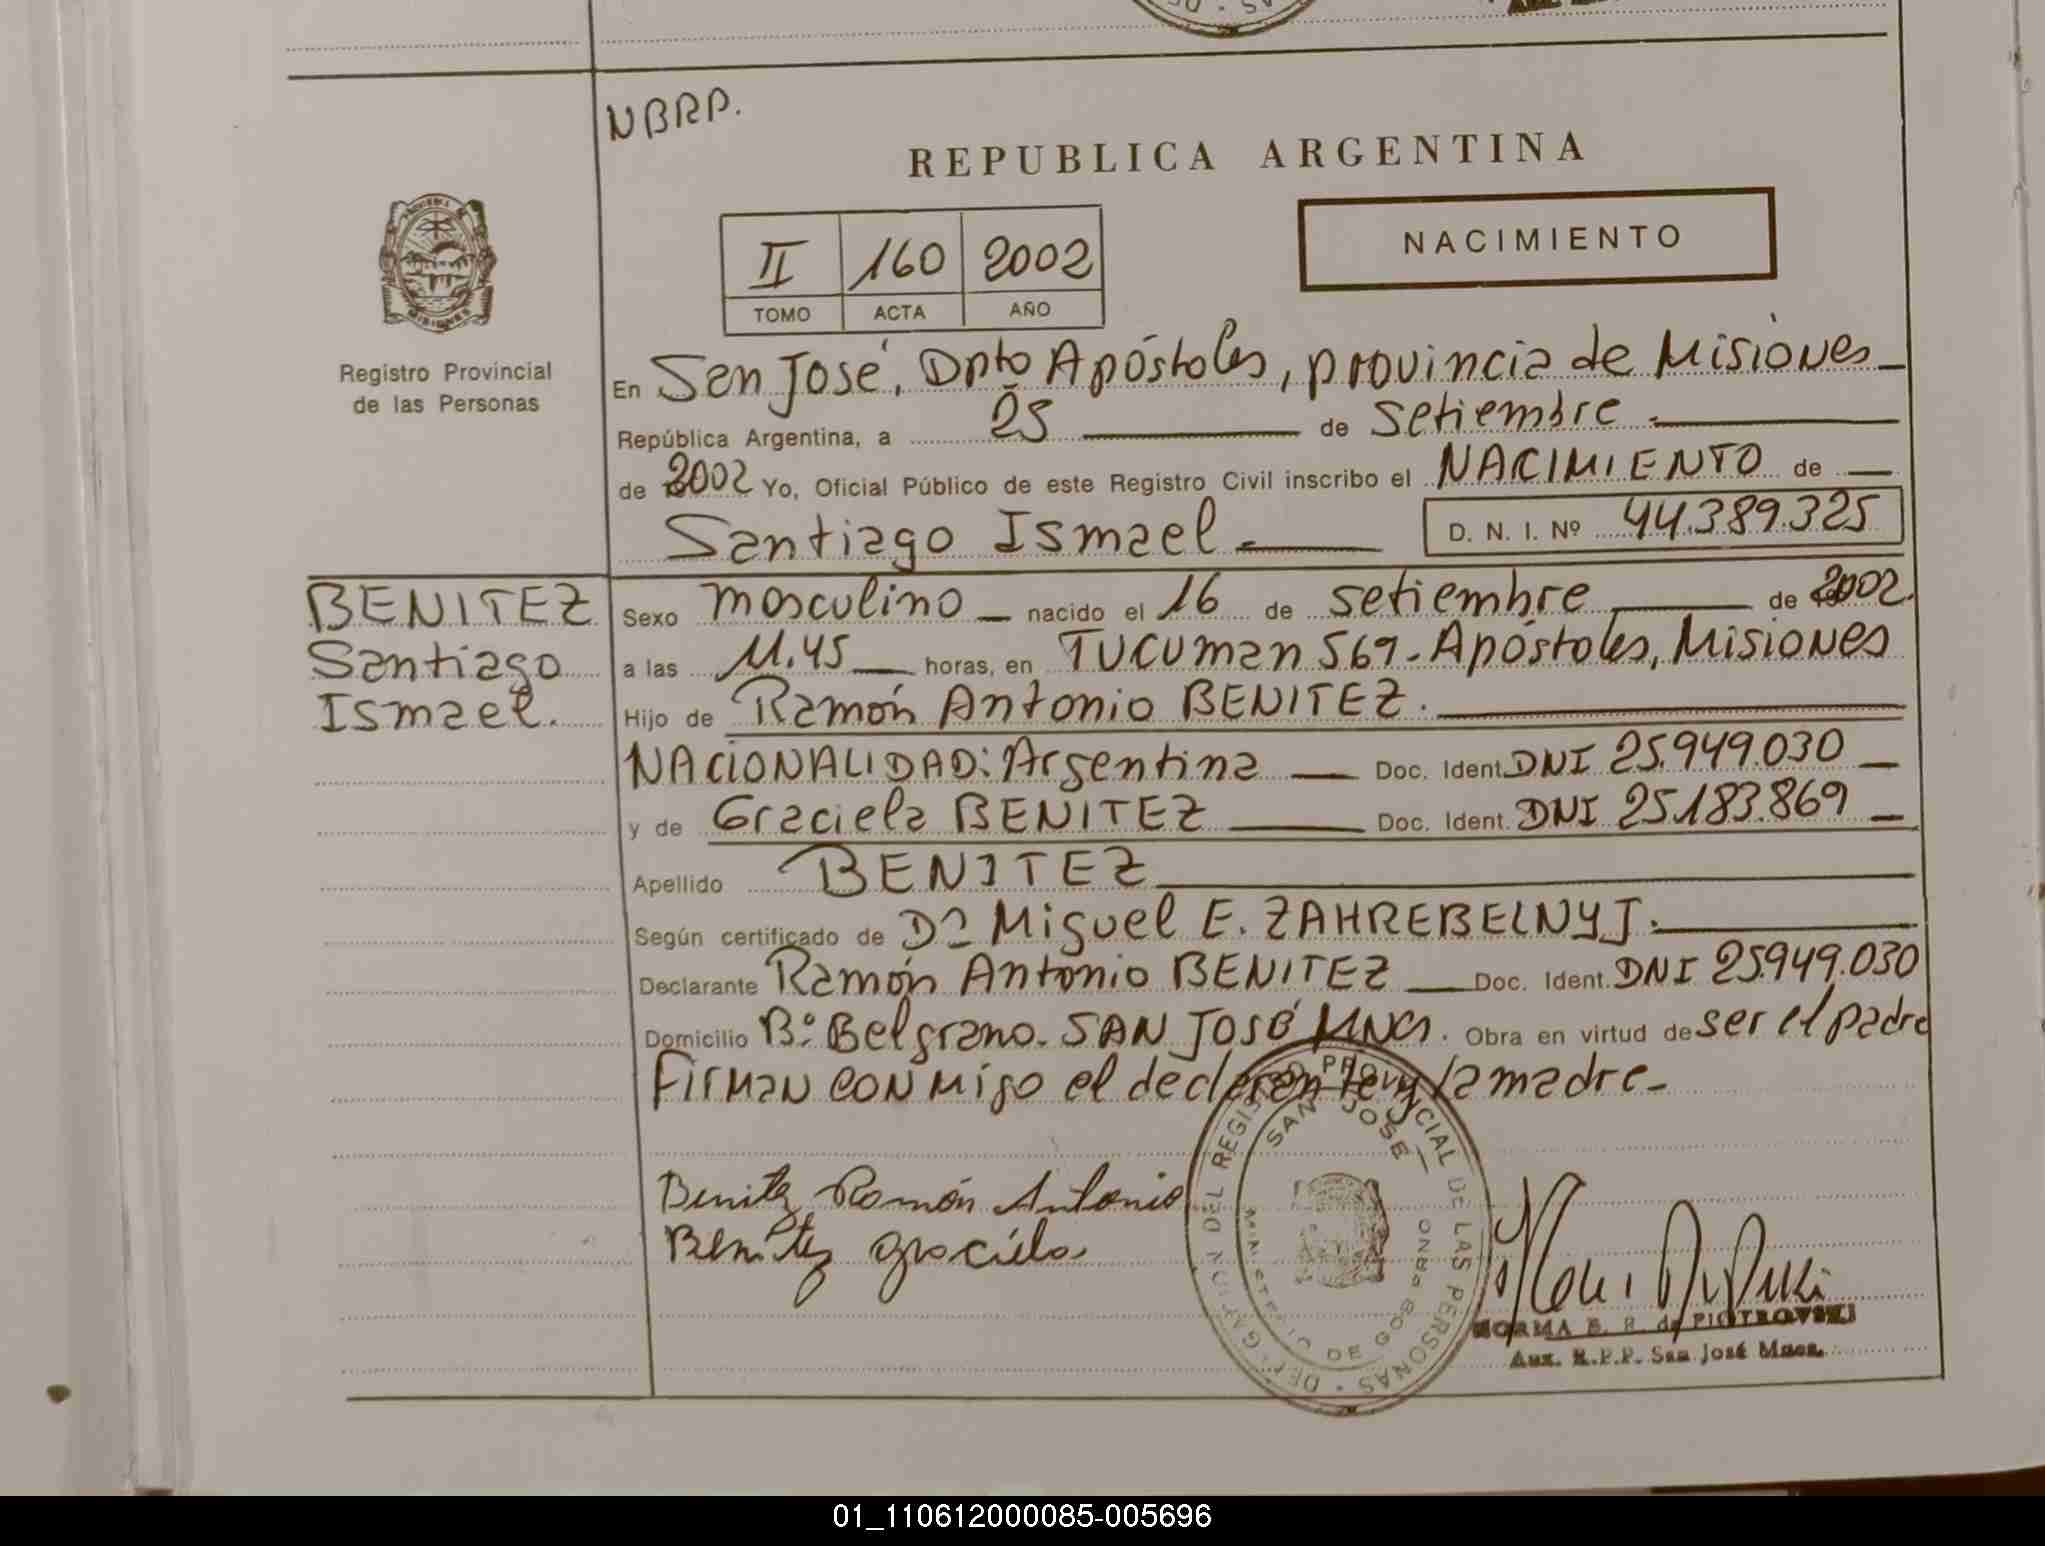 NBRP.
REPUBLICA ARGENTINA
NACIMIENTO
II 160 2002
TOMO ACTA AÑO
Registro Provincial
de las Personas
En San José, Dpto Apóstoles, provincia de Misiones
República Argentina, a 25 de Setiembre
de 2002 Yo, Oficial Público de este Registro Civil inscribo el NACIMIENTO de
Santiago Ismael D. N. I. Nº 44.389.325
BENITEZ
Santiago
Ismael.
Sexo masculino nacido el 16 de setiembre de 2002.
a las 11.45 horas, en Tucuman 569 - Apóstoles, Misiones
Hijo de Ramón Antonio BENITEZ.
NACIONALIDAD: Argentina Doc. Ident. DNI 25.949.030
y de Graciela BENITEZ Doc. Ident. DNI 25.183.869
Apellido BENITEZ
Según certificado de Dr Miguel E. ZAHREBELNYJ.
Declarante Ramón Antonio BENITEZ Doc. Ident. DNI 25.949.030
Domicilio Bº Belgrano. SAN JOSÉ Mnes. Obra en virtud de ser el padre
Firman conmigo el declarante y la madre
Benitez Ramón Antonio
Benitez Graciela
DELEGACION DEL REGISTRO PROVINCIAL DE LAS PERSONAS
SAN JOSE
MINISTERIO DE GOBIERNO
NORMA B. R. de PIOTROVSKI
Aux. R.P.P. San José Mnes.
01_110612000085-005696